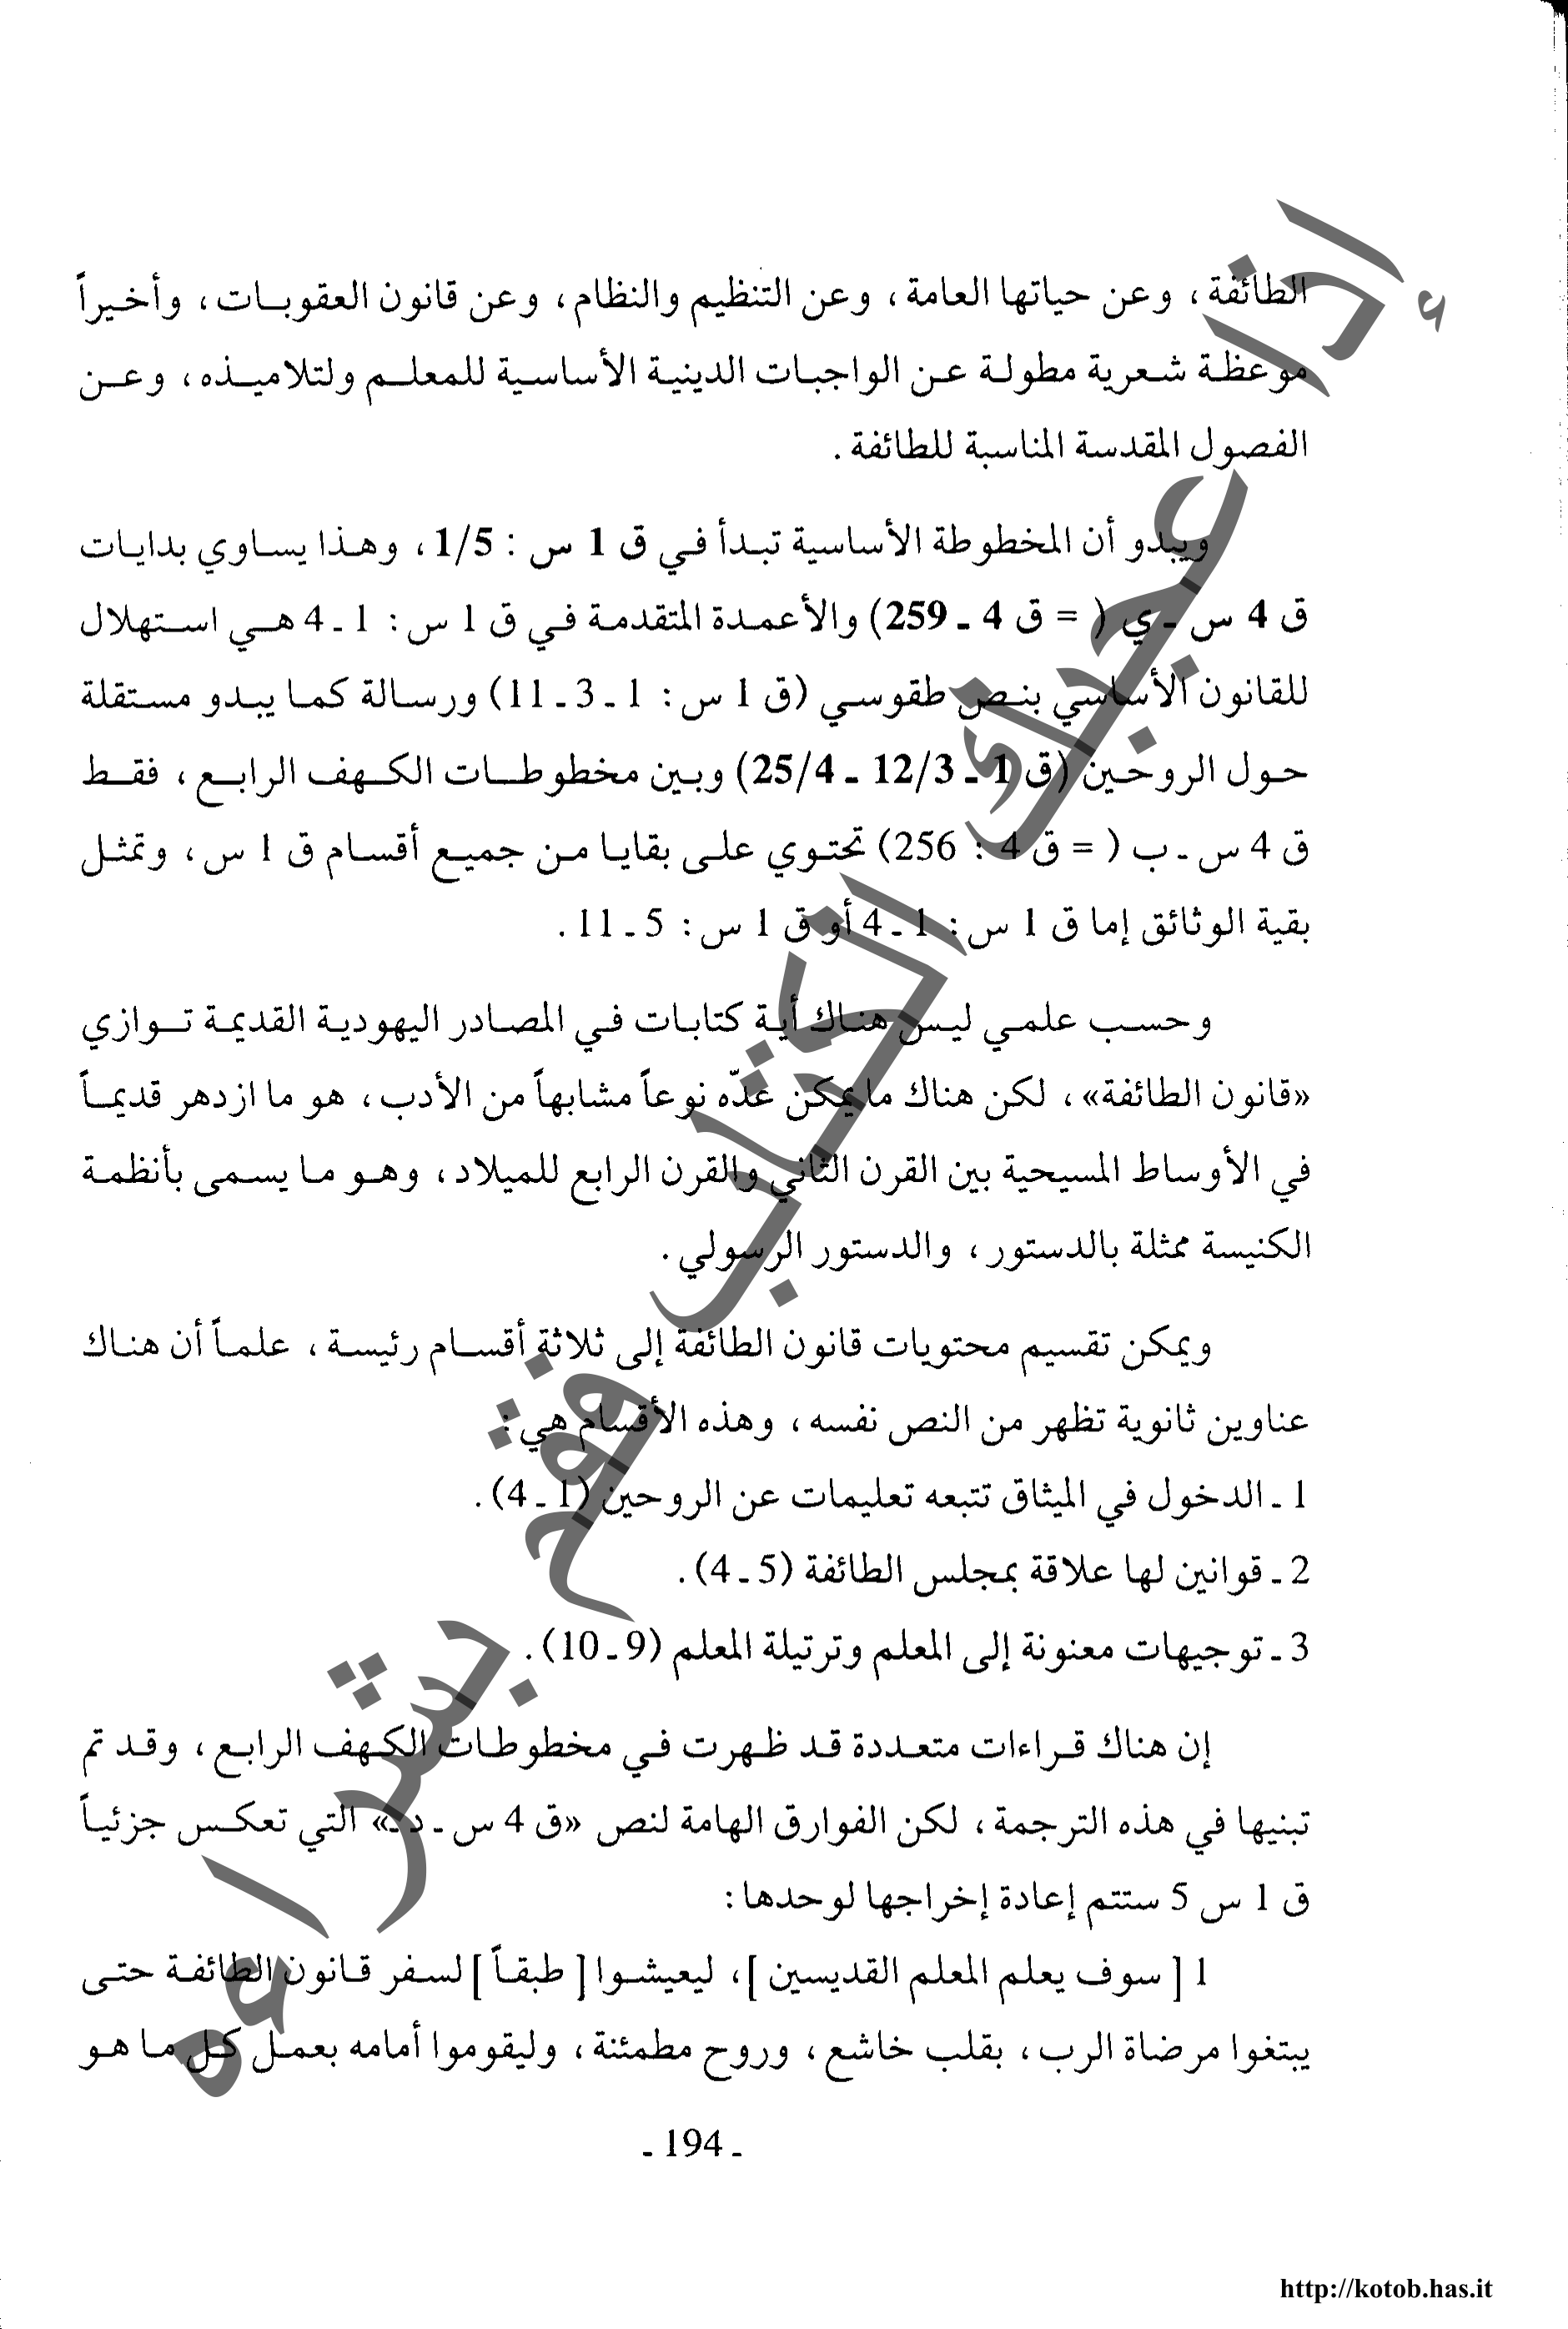 الطائفة، وعن حياتها العامة، وعن التنظيم والنظام، وعن قانون العقوبات، وأخيراً
موعظة شعرية مطولة عن الواجبات الدينية الأساسية للمعلم ولتلاميذه، وعن
الفصول المقدسة المناسبة للطائفة.
ويبدو أن المخطوطة الأساسية تبدأ في ق 1 س : 1/5، وهذا يساوي بدايات
ق 4 س ـ ي ( = ق 4 ـ 259) والأعمدة المتقدمة في ق 1 س : 1 ـ 4 هي استهلال
للقانون الأساسي بنص طقوسي (ق 1 س : 1 ـ 3 ـ 11) ورسالة كما يبدو مستقلة
حول الروحين (ق 1 ـ 12/3 ـ 25/4) وبين مخطوطات الكهف الرابع، فقط
ق 4 س ـ ب ( = ق 4 : 256) تحتوي على بقايا من جميع أقسام ق 1 س، وتمثل
بقية الوثائق إما ق 1 س : 1 ـ 4 أو ق 1 س : 5 ـ 11 .
وحسب علمي ليس هناك أية كتابات في المصادر اليهودية القديمة توازي
«قانون الطائفة»، لكن هناك ما يمكن عدّه نوعاً مشابهاً من الأدب، هو ما ازدهر قديماً
في الأوساط المسيحية بين القرن الثاني والقرن الرابع للميلاد، وهو ما يسمى بأنظمة
الكنيسة ممثلة بالدستور، والدستور الرسولي.
ويمكن تقسيم محتويات قانون الطائفة إلى ثلاثة أقسام رئيسة، علماً أن هناك
عناوين ثانوية تظهر من النص نفسه، وهذه الأقسام هي:
1 ـ الدخول في الميثاق تتبعه تعليمات عن الروحين (1 ـ 4).
2 ـ قوانين لها علاقة بمجلس الطائفة (5 ـ 4).
3 ـ توجيهات معنونة إلى المعلم وترتيلة المعلم (9 ـ 10).
إن هناك قراءات متعددة قد ظهرت في مخطوطات الكهف الرابع، وقد تم
تبنيها في هذه الترجمة، لكن الفوارق الهامة لنص «ق 4 س ـ د ـ» التي تعكس جزئياً
ق 1 س 5 ستتم إعادة إخراجها لوحدها:
1 [سوف يعلم المعلم القديسين]، ليعيشوا [طبقاً] لسفر قانون الطائفة حتى
يبتغوا مرضاة الرب، بقلب خاشع، وروح مطمئنة، وليقوموا أمامه بعمل كل ما هو
ـ 194 ـ
أذا عجبك الكتاب فقم بشراءه
http://kotob.has.it